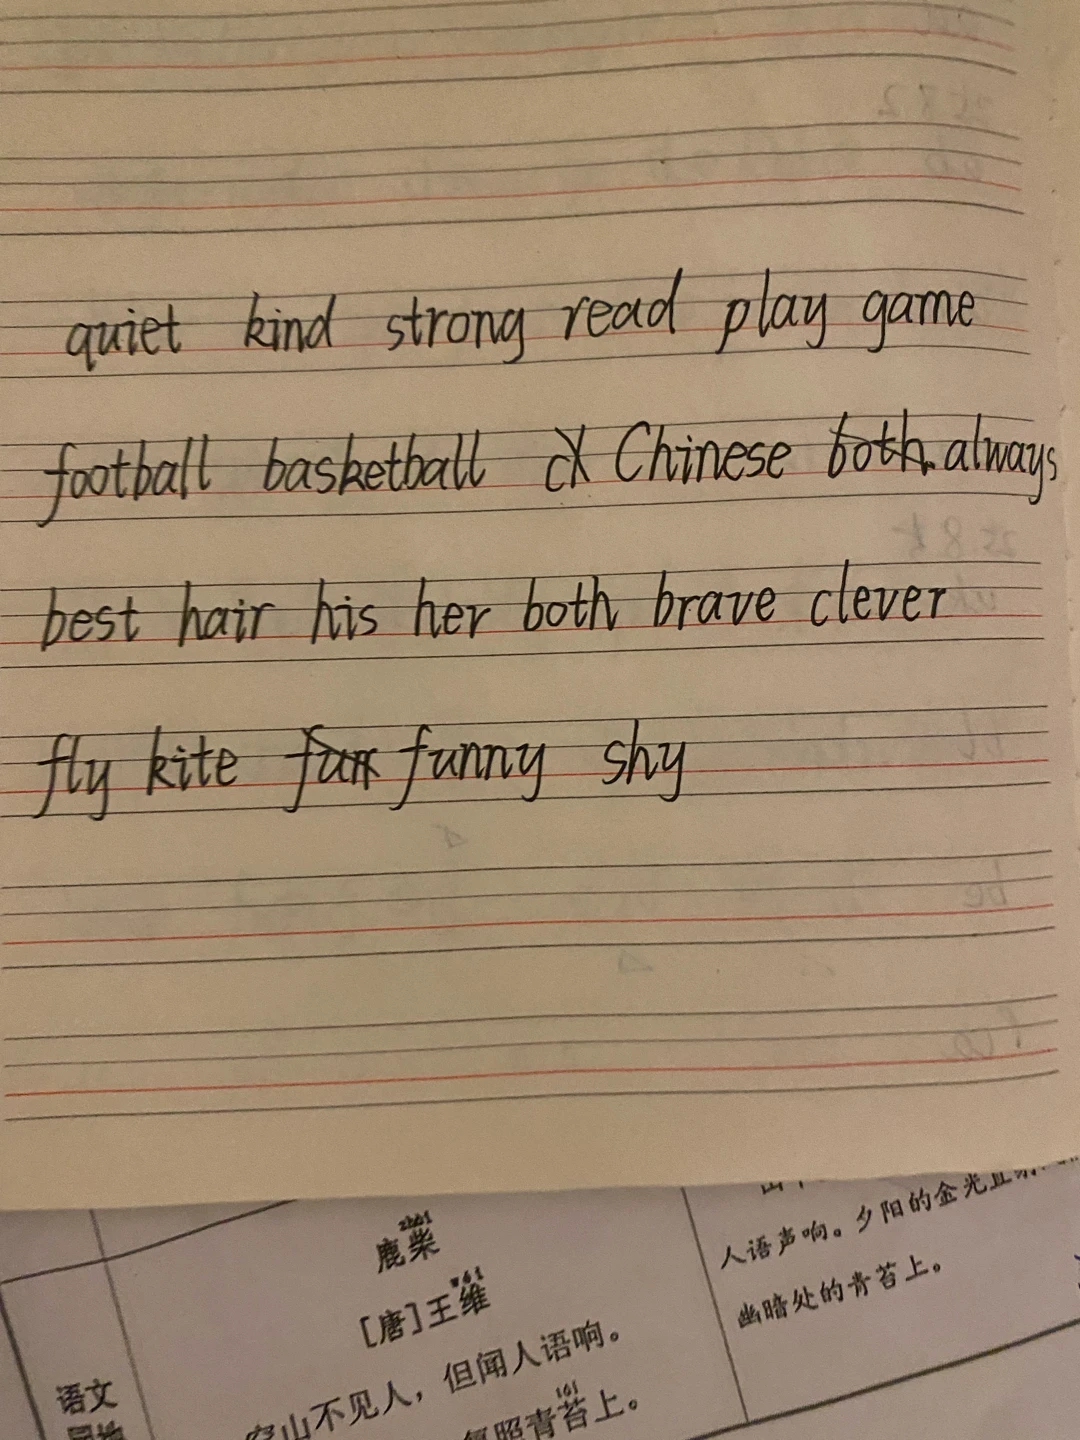 quiet kind strong read play game
football basketball Chinese both always
best hair his her both brave clever
fly kite funny shy
鹿柴
[唐]王维
空山不见人，但闻人语响。
照青苔上。
人语声响。夕阳的金光直
幽暗处的青苔上。
语文